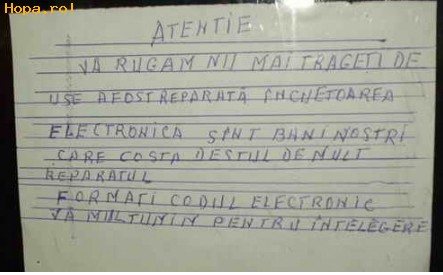 Hopa.ro!
ATENTIE
VĂ RUGAM NU MAI TRAGETI DE
USE A FOST REPARATĂ INCUETOAREA
ELECTRONICA SÎNT BANI NOSTRI
CARE COSTA DESTUL DE MULT
REPARATUL
FORMATI CODUL ELECTRONIC
VĂ MULTUMIN PENTRU ÎNTELEGERE